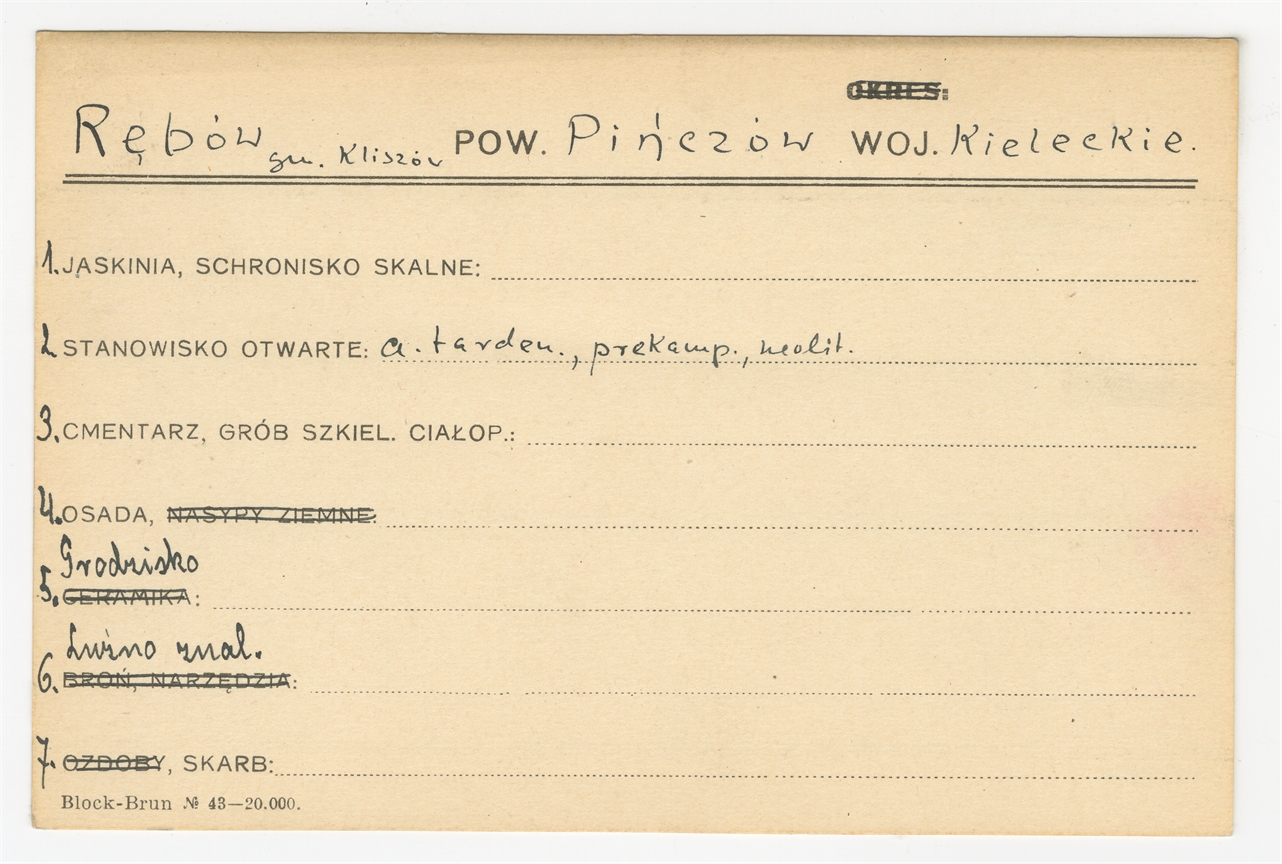 OKRES:
Rębów gm. Kliszów POW. Pińczów WOJ. Kieleckie.
1. JASKINIA, SCHRONISKO SKALNE:
2. STANOWISKO OTWARTE: a. tarden., prekamp., neolit.
3. CMENTARZ, GRÓB SZKIEL. CIAŁOP.:
4. OSADA, NASYPY ZIEMNE:
Grodzisko
5. CERAMIKA:
Luźno znal.
6. BROŃ, NARZĘDZIA:
7. OZDOBY, SKARB:
Block-Brun № 43—20.000.